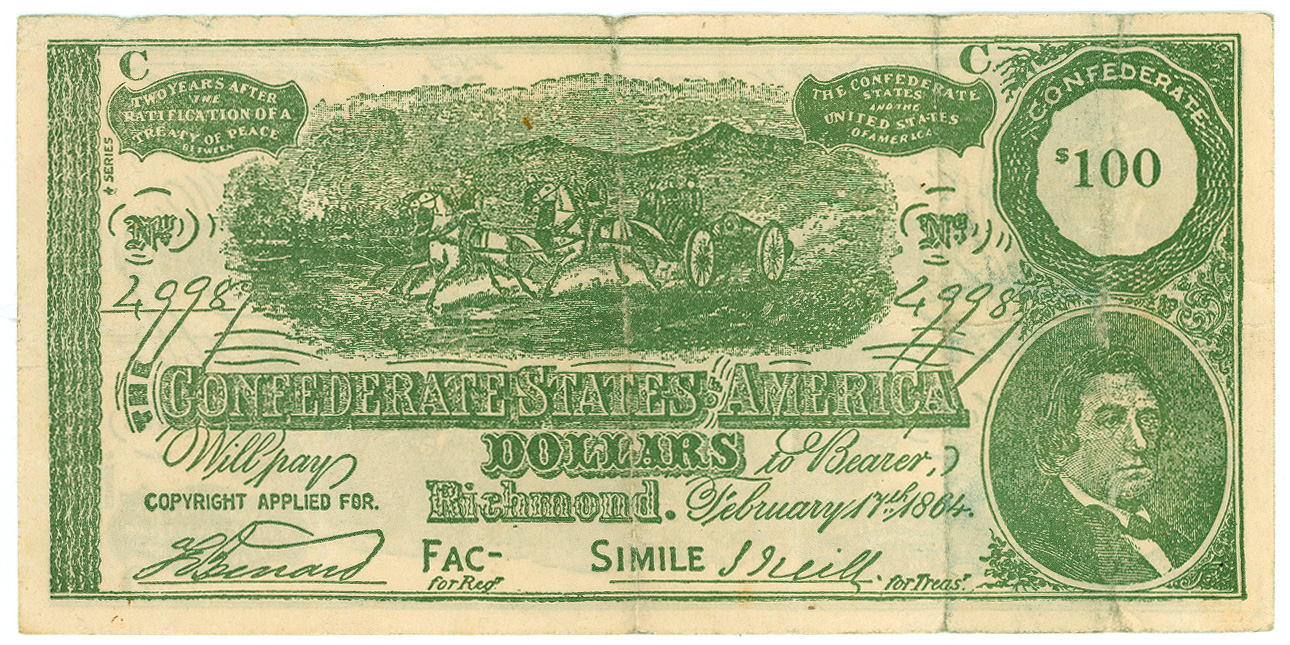 C
TWO YEARS AFTER
THE
RATIFICATION OF A
TREATY OF PEACE
BETWEEN
C
THE CONFEDERATE
STATES
AND THE
UNITED STATES
OF AMERICA
CONFEDERATE
$100
4 SERIES
No.
No.
49989
49989
THE CONFEDERATE STATES OF AMERICA
Will pay DOLLARS to Bearer,
COPYRIGHT APPLIED FOR.
Richmond. February 17th, 1864.
FAC-SIMILE
for Regr.
for Treasr.